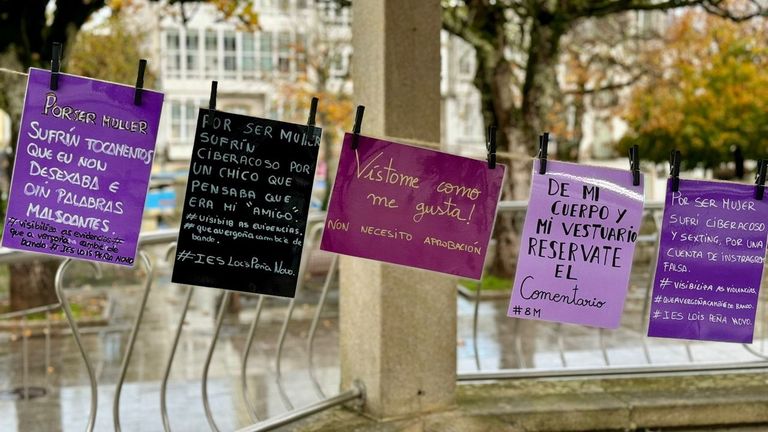 POR SER MULLER
SUFRÍN TOCAMENTOS
QUE EU NON
DESEXABA E
OÍN PALABRAS
MALSOANTES.
#VISIBILIZA AS EVIDENCIAS#
QUE A VERGOÑA CAMBIE DE
BANDO. #IES LOIS PEÑA NOVO
POR SER MULLER
SUFRÍN
CIBERACOSO POR
UN CHICO QUE
PENSABA QUE
ERA MI "AMIGO".
#VISIBILIZA AS EVIDENCIAS.
#QUE A VERGOÑA CAMBIE DE
BANDO.
#IES LOIS PEÑA NOVO.
Vístome como
me gusta!
NON NECESITO APROBACIÓN
DE MI
CUERPO Y
MI VESTUARIO
RESERVATE
EL
Comentario
#8M
POR SER MUJER
SUFRÍ CIBERACOSO
Y SEXTING, POR UNA
CUENTA DE INSTAGRAM
FALSA.
#VISIBILITA AS VIOLENCIAS.
#QUE A VERGOÑA CAMBIE DE BANDO.
#IES LOIS PEÑA NOVO.